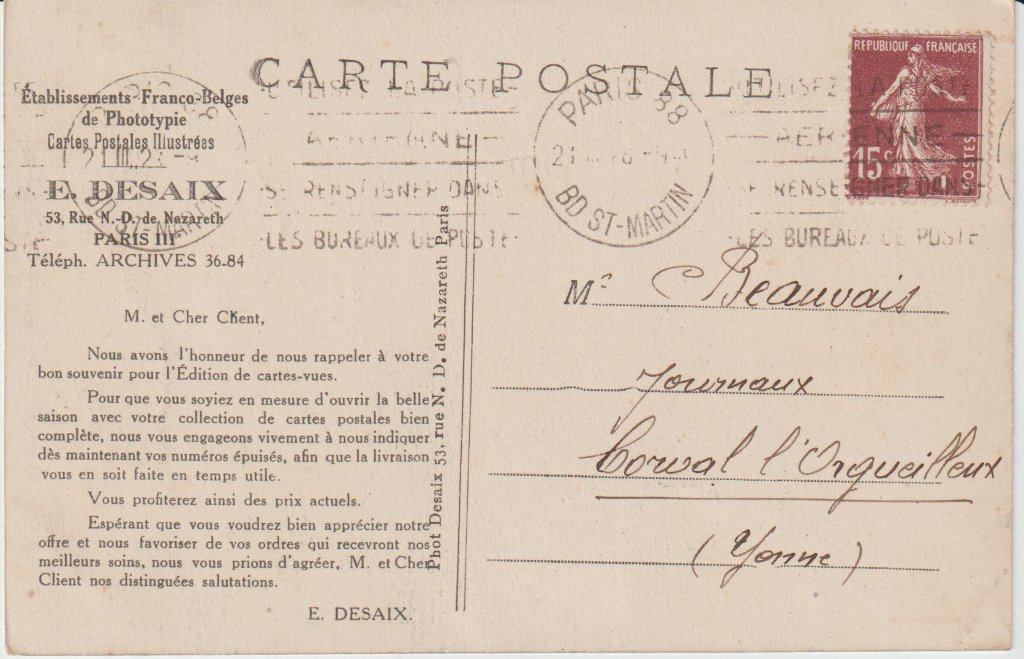 CARTE POSTALE
REPUBLIQUE FRANÇAISE
15c
POSTES
Établissements Franco-Belges
de Phototypie
Cartes Postales Illustrées
E. DESAIX
53, Rue N.-D. de Nazareth
PARIS III
Téléph. ARCHIVES 36-84
PARIS 88
BD ST-MARTIN
UTILISEZ LA POSTE
AERIENNE
SE RENSEIGNER DANS
LES BUREAUX DE POSTE
M. et Cher Client,
Nous avons l'honneur de nous rappeler à votre
bon souvenir pour l'Édition de cartes-vues.
Pour que vous soyiez en mesure d'ouvrir la belle
saison avec votre collection de cartes postales bien
complète, nous vous engageons vivement à nous indiquer
dès maintenant vos numéros épuisés, afin que la livraison
vous en soit faite en temps utile.
Vous profiterez ainsi des prix actuels.
Espérant que vous voudrez bien apprécier notre
offre et nous favoriser de vos ordres qui recevront nos
meilleurs soins, nous vous prions d'agréer, M. et Cher
Client nos distinguées salutations.
E. DESAIX.
Phot Desaix 53, rue N. D. de Nazareth Paris
Mr Beauvais
Journaux
Corval l'Orgueilleux
(Yonne)